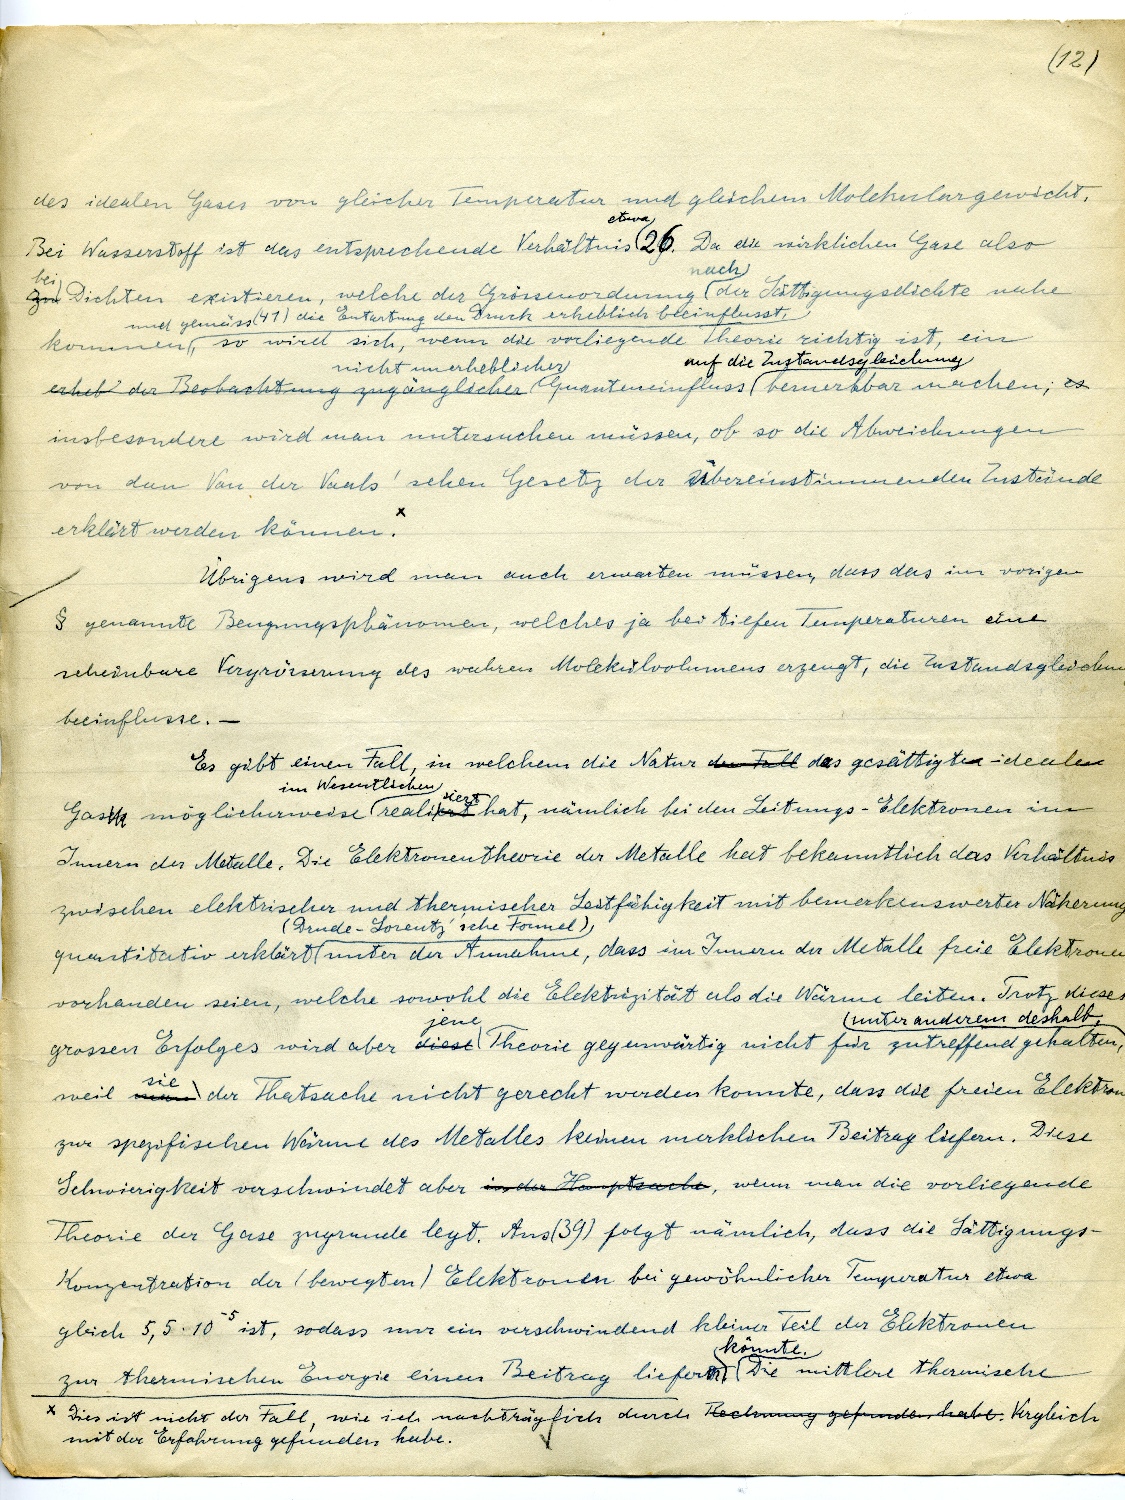 (12)
des idealen Gases von gleicher Temperatur und gleichem Molekulargewicht.
etwa
Bei Wasserstoff ist das entsprechende Verhältnis 26. Da die wirklichen Gase also
bei nach
zu Dichten existieren, welche der Grössenordnung der Sättigungsdichte nahe
und gemäss (41) die Entartung den Druck erheblich beeinflusst,
kommen, so wird sich, wenn die vorliegende Theorie richtig ist, ein
nicht unerheblicher auf die Zustandsgleichung
erheb der Beobachtung zugänglicher Quanteneinfluss bemerkbar machen; es
insbesondere wird man untersuchen müssen, ob so die Abweichungen
von dem Van der Vaals'schen Gesetz der übereinstimmenden Zustände
erklärt werden können. x
Übrigens wird man auch erwarten müssen, dass das im vorigen
§ genannte Beugungsphänomen, welches ja bei tiefen Temperaturen eine
scheinbare Vergrösserung des wahren Molekülvolumens erzeugt, die Zustandsgleichung
beeinflusse. —
Es gibt einen Fall, in welchem die Natur den Fall das gesättigte idealen
im Wesentlichen siert
Gas möglicherweise realisiert hat, nämlich bei den Leitungs-Elektronen im
Innern der Metalle. Die Elektronentheorie der Metalle hat bekanntlich das Verhältnis
zwischen elektrischer und thermischer Leitfähigkeit mit bemerkenswerter Näherung
(Drude-Lorentz'sche Formel)
quantitativ erklärt unter der Annahme, dass im Innern der Metalle freie Elektronen
vorhanden seien, welche sowohl die Elektrizität als die Wärme leiten. Trotz dieses
jene unter anderem deshalb,
grossen Erfolges wird aber diese Theorie gegenwärtig nicht für zutreffend gehalten,
sie
weil man der Thatsache nicht gerecht werden konnte, dass die freien Elektronen
zur spezifischen Wärme des Metalles keinen merklichen Beitrag liefern. Diese
Schwierigkeit verschwindet aber in der Hauptsache, wenn man die vorliegende
Theorie der Gase zugrunde legt. Aus (39) folgt nämlich, dass die Sättigungs-
Konzentration der (bewegten) Elektronen bei gewöhnlicher Temperatur etwa
gleich 5,5·10⁻⁵ ist, sodass nur ein verschwindend kleiner Teil der Elektronen
könnte.
zur thermischen Energie einen Beitrag liefern Die mittlere thermische
x Dies ist nicht der Fall, wie ich nachträglich durch Rechnung gefunden habe. Vergleich
mit der Erfahrung gefunden habe.